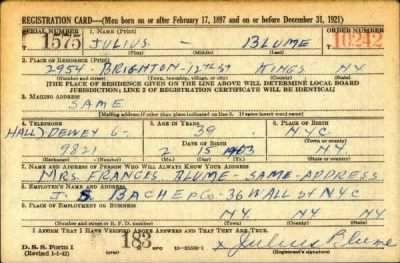 REGISTRATION CARD—(Men born on or after February 17, 1897 and on or before December 31, 1921)
SERIAL NUMBER 1. NAME (Print) ORDER NUMBER
1575 JULIUS — BLUME 10242
(First) (Middle) (Last)
2. PLACE OF RESIDENCE (Print)
2954 - BRIGHTON - 12th St KINGS NY
(Number and street) (Town, township, village, or city) (County) (State)
[THE PLACE OF RESIDENCE GIVEN ON THE LINE ABOVE WILL DETERMINE LOCAL BOARD
JURISDICTION; LINE 2 OF REGISTRATION CERTIFICATE WILL BE IDENTICAL]
3. MAILING ADDRESS
SAME
[Mailing address if other than place indicated on line 2. If same insert word same]
4. TELEPHONE 5. AGE IN YEARS 6. PLACE OF BIRTH
DEWEY 6- 39 NYC
DATE OF BIRTH (Town or county)
9821 2 15 1903 NY
(Exchange) (Number) (Mo.) (Day) (Yr.) (State or country)
7. NAME AND ADDRESS OF PERSON WHO WILL ALWAYS KNOW YOUR ADDRESS
MRS. FRANCES BLUME - SAME - ADDRESS
8. EMPLOYER'S NAME AND ADDRESS
J. S. BACHE & Co - 36 WALL St NYC
9. PLACE OF EMPLOYMENT OR BUSINESS
NY NY NY
(Number and street or R. F. D. number) (Town) (County) (State)
I AFFIRM THAT I HAVE VERIFIED ABOVE ANSWERS AND THAT THEY ARE TRUE.
D. S. S. Form 1
(Revised 1-1-42) (over) 183 GPO x Julius Blume
(Registrant's signature)